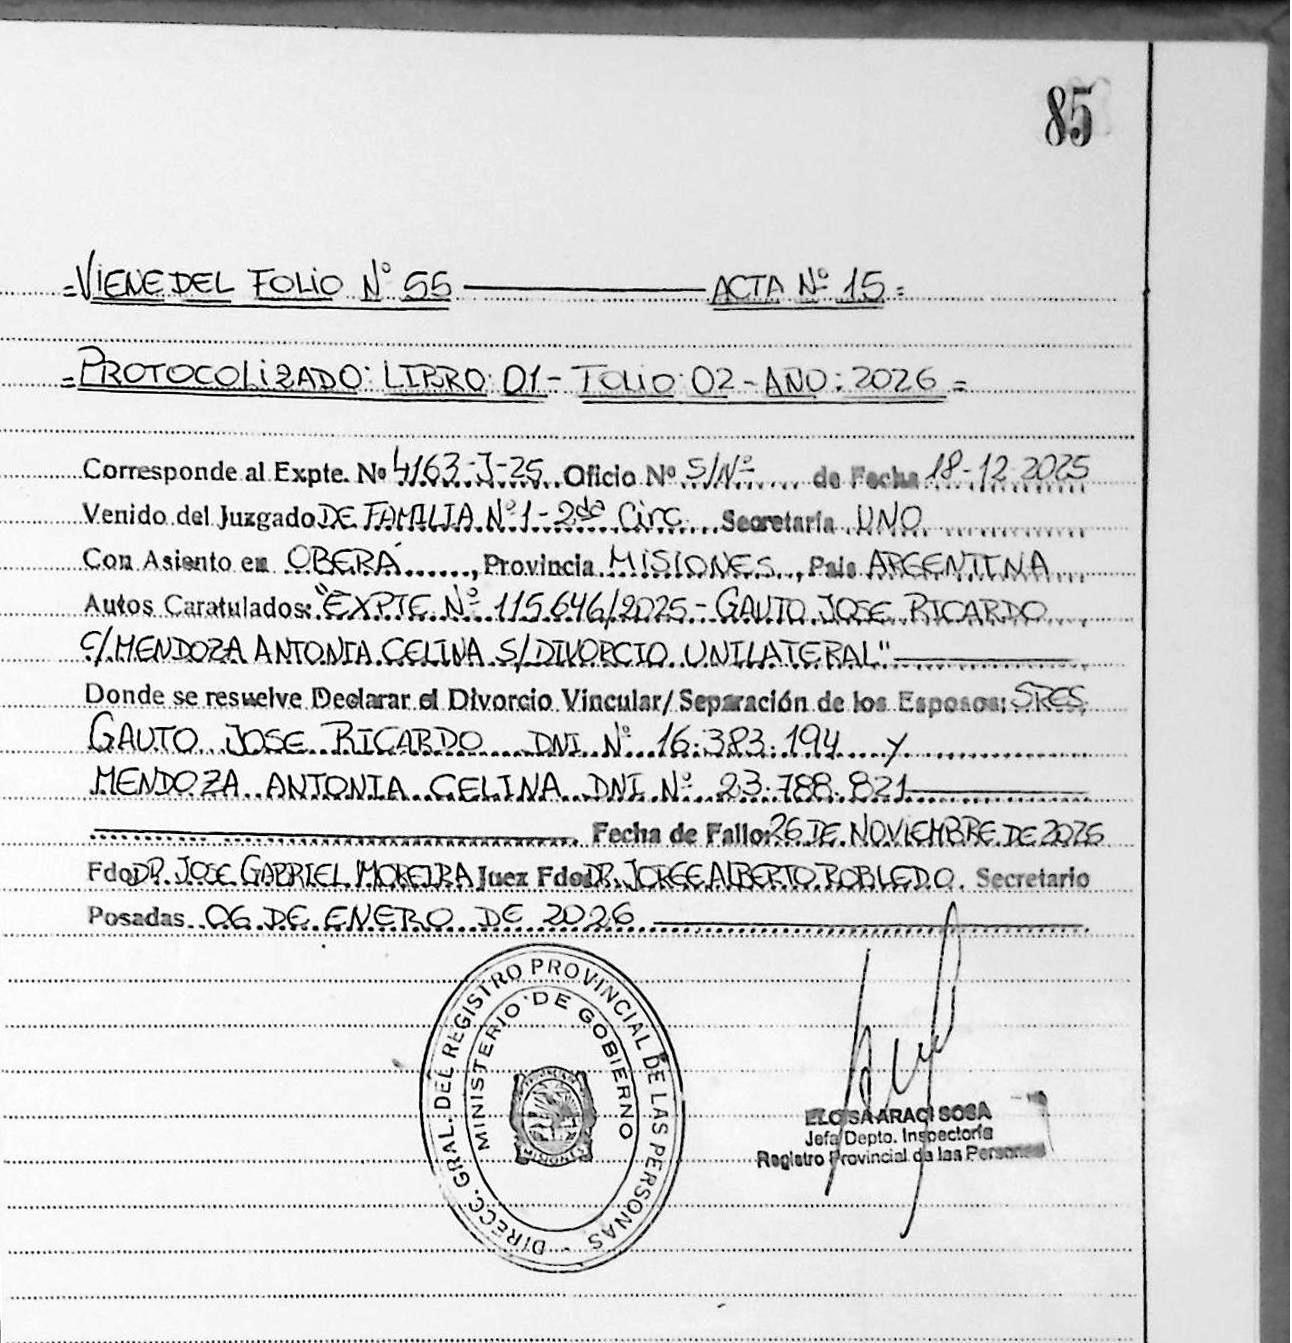 85
=VIENE DEL FOLIO Nº 55 ACTA Nº 15=
=PROTOCOLIZADO: LIBRO: 01- FOLIO: 02- AÑO: 2026=
Corresponde al Expte. Nº 4163-J-25. Oficio Nº S/Nº de Fecha 18-12-2025
Venido del Juzgado DE FAMILIA Nº1-2da Circ. Secretaría UNO
Con Asiento en OBERÁ, Provincia MISIONES, País ARGENTINA
Autos Caratulados: "EXPTE Nº 115.646/2025-GAUTO JOSE RICARDO
C/MENDOZA ANTONIA CELINA S/DIVORCIO UNILATERAL"
Donde se resuelve Declarar el Divorcio Vincular/Separación de los Esposos: SRES.
GAUTO JOSE RICARDO DNI Nº 16.383.194 y
MENDOZA ANTONIA CELINA DNI Nº 23.788.821
Fecha de Fallo: 26 DE NOVIEMBRE DE 2025
Fdo DR. JOSE GABRIEL MOREIRA Juez Fdo DR. JORGE ALBERTO ROBLEDO. Secretario
Posadas 06 DE ENERO DE 2026
DIRECC. GRAL. DEL REGISTRO PROVINCIAL DE LAS PERSONAS -
MINISTERIO DE GOBIERNO
ELOISA ARACI SOSA
Jefa Depto. Inspectoría
Registro Provincial de las Personas